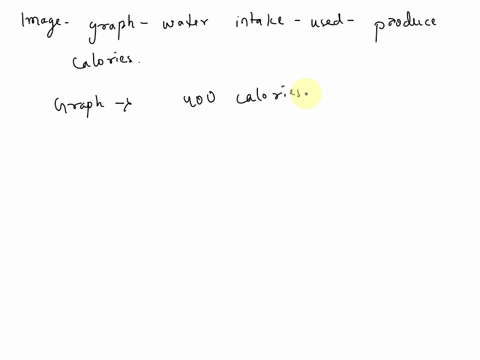 Image - graph - water intake - used - produce
calories.
Graph → 400 calories.